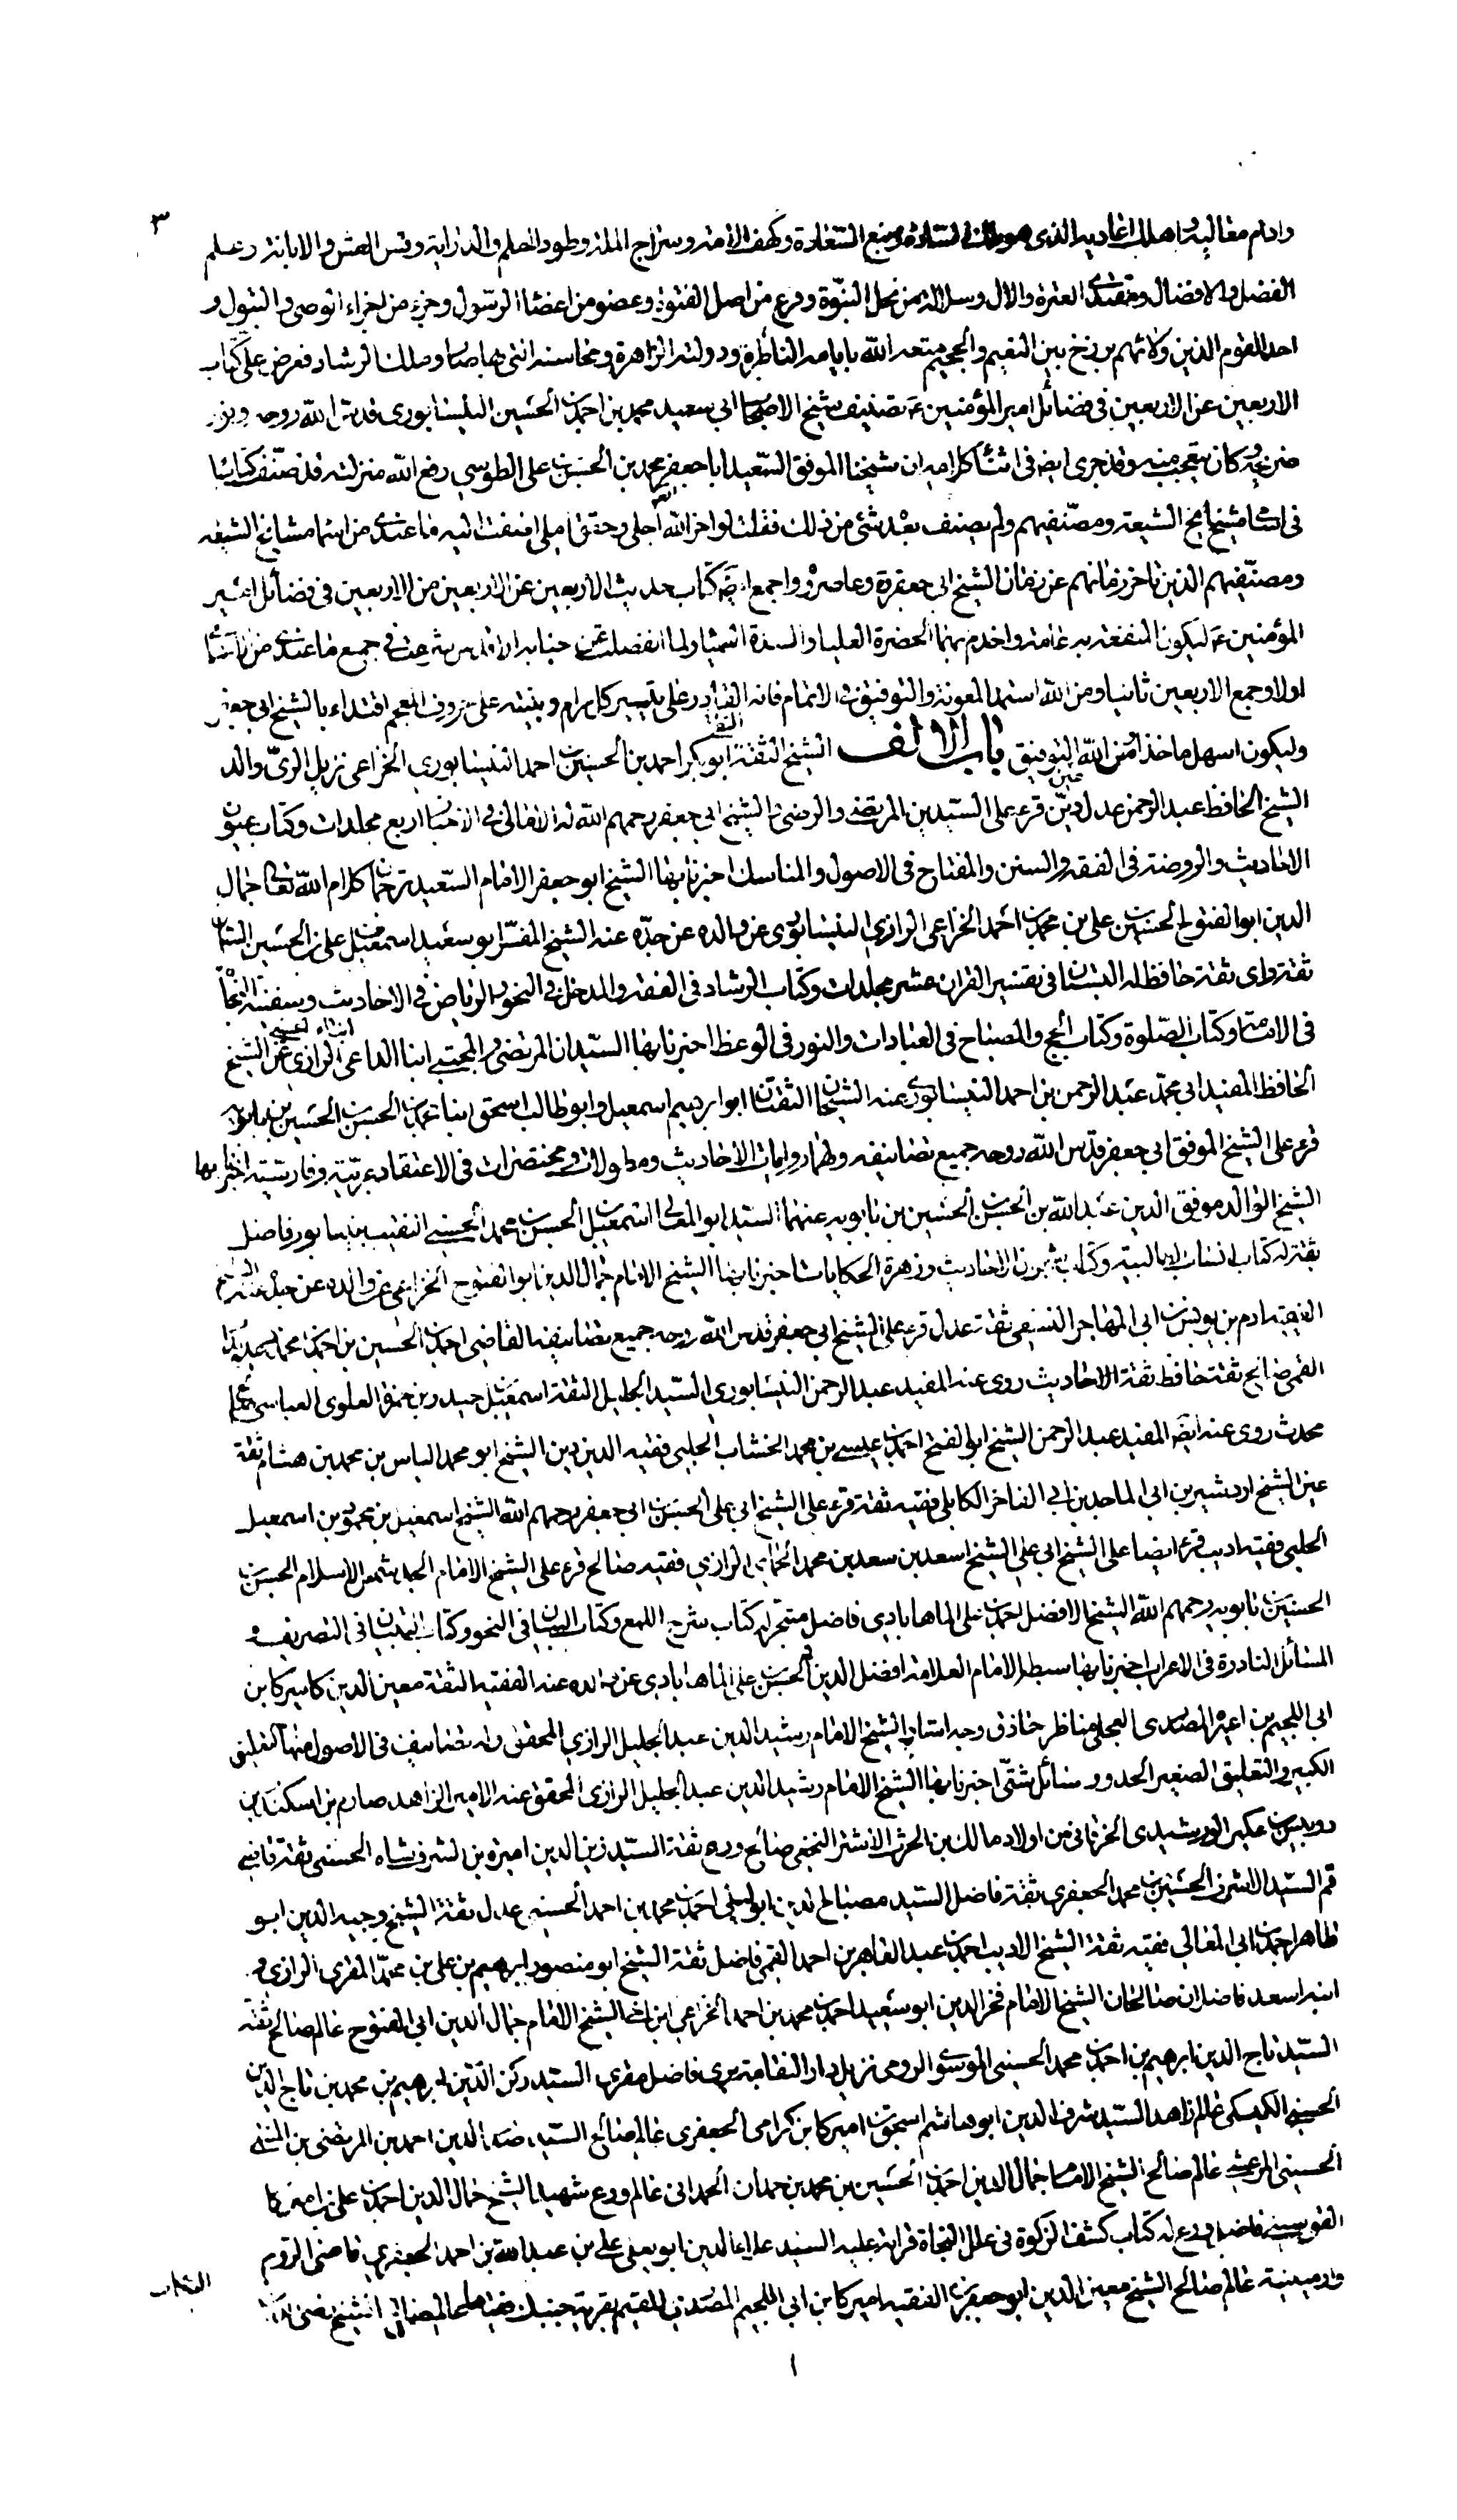 ٣
وادام معاليه واهلك اعاديه الذي هو ملك السادة ومنبع السعادة وكهف الامة وسراج الملة وطود الحلم والدراية وقس والابانة وعلم
الفضل والافضال ومقتدى العترة والال وسلالة من نجل النبوة وفرع من اصل الفتوة وعضو من اعضا الرسول وجزء من اجزاء الوصي والبتول و
احد القوم الذين ولائهم برزخ بين النعيم والجحيم متعه الله بايامه الناظرة ودولته الزاهرة ومحاسنه التي هاصا وملك الرشاد فعرض على كتاب
الاربعين عن الاربعين في فضائل امير المؤمنين ع تصنيف شيخ الاصحاب ابي سعيد محمد بن احمد بن الحسين النيسابوري قدس الله روحه ونور
ضريحه وكان يتعجب منه وقد جرى ايضا في اثناء كلامه ان شيخنا الموفق السعيد ابا جعفر محمد بن الحسن بن علي الطوسي رفع الله منزلته قد صنف كتابا
في اسامي مشايخ الشيعة ومصنفيهم ولم يصنف بعده شئ من ذلك فقلت لو اخر الله اجلي وحقق املي اضفت اليه ما عندي من اسما مشايخ الشيعة
ومصنفيهم الذين تاخر زمانهم عن زمان الشيخ ابي جعفر ره وعاصروه واجمع ايضا كتاب حديث الاربعين عن الاربعين من الاربعين في فضائل امير
المؤمنين ع ليكون المنفعة به عامة واخدم بهما الحضرة العليا والسدة الشما ولما انفصلت عن جنابه الاقدس شرعت في جميع ما عندي من الاسما
اولا وجمع الاربعين ثانيا ومن الله استمد المعونة والتوفيق في الاتمام فانه القادر على تيسير كل مرام وبنيته على حروف المعجم اقتداء بالشيخ ابي جعفر
وليكون اسهل ماخذا ومن الله التوفيق باب الالف الشيخ الثقة ابو بكر احمد بن الحسين بن احمد النيسابوري الخزاعي نزيل الري والد
الشيخ الحافظ عبد الرحمن عدل عين دين قرء على السيدين المرتضى والرضي والشيخ ابي جعفر رحمهم الله له الامالي في الاخبار اربع مجلدات وكتاب عيون
الاحاديث والروضة في الفقه والسنن والمفتاح في الاصول والمناسك اخبرنا بها الشيخ ابو جعفر الامام السعيد ترجمان كلام الله تعالى جمال
الدين ابو الفتوح الحسين بن علي بن محمد بن احمد الخزاعي الرازي النيسابوري عن والده عن جده عنه الشيخ المفسر ابو سعيد اسمعيل بن علي بن الحسين السمان
ثقة واى ثقة حافظ له البستان في تفسير القران عشر مجلدات وكتاب الرشاد في الفقه والمدخل في النحو والرياض في الاحاديث وسفينة النجاة
في الامامة وكتاب الصلوة وكتاب الحج والمصباح في العبادات والنور في الوعظ اخبرنا بها السيدان المرتضى والمجتبى ابنا الداعي الرازي عن الشيخ
الحافظ المفيد ابي محمد عبد الرحمن بن احمد النيسابوري عنه الشيخان الثقتان ابو ابرهيم اسمعيل وابو طالب اسحق ابنا محمد بن الحسن بن الحسين بن بابويه
قرء على الشيخ الموفق ابي جعفر قدس الله روحه جميع تصانيفه ولهما روايات الاحاديث ومطولات ومختصرات في الاعتقاد عربية وفارسية اخبرنا بها
الشيخ الوالد موفق الدين عبد الله بن الحسن بن الحسين بن بابويه عنهما السيد ابو المعالي اسمعيل بن الحسن بن محمد الحسيني النقيب بنيسابور فاضل
ثقة له كتاب انساب الطالبية وكتاب شجون الاحاديث وزهرة الحكايات اخبرنا بها الشيخ الامام جمال الدين ابو الفتوح الخزاعي عن والده عن جده عنه الشيخ
الفقيه ادم بن يونس بن ابي المهاجر النسفي ثقة عدل قرء على الشيخ ابي جعفر قدس الله روحه جميع تصانيفه القاضي احمد بن الحسين بن احمد بن محمد
القمي صالح ثقة حافظ ثقة الاحاديث روى عنه المفيد عبد الرحمن النيسابوري السيد الجليل الثقة اسمعيل بن حيدر بن حمزة العلوي العباسي عالم
محدث روى عنه ايضا المفيد عبد الرحمن الشيخ ابو الفتح احمد بن عيسى بن محمد الخشاب الحلبي فقيه الدين دين الشيخ ابو محمد الياس بن محمد بن هشام ثقة
عين الشيخ اردشير بن ابي الماجد بن ابي المفاخر الكابلي فقيه ثقة قرء على الشيخ ابي علي الحسن بن ابي جعفر رحمهم الله الشيخ اسمعيل بن محمود بن اسمعيل
الحلبي فقيه اديب قرء ايضا على الشيخ ابي علي الشيخ اسعد بن سعد بن محمد الحمامي الرازي فقيه صالح قرء على الشيخ الامام الجد شمس الاسلام الحسن بن
الحسين بن بابويه رحمهم الله الشيخ الافضل احمد بن علي الماهابادي فاضل متبحر له كتاب شرح اللمع وكتاب البيان في النحو وكتاب التبيان في التصريف و
المسائل النادرة في الاعراب اخبرنا بها سبطه الامام العلامة افضل الدين الحسن بن علي الماهابادي عن والده عنه الفقيه الثقة معين الدين كاميركا بن
ابي اللجيم بن اميرة المصدري العجلي مناظر حاذق وجه استاد الشيخ الامام رشيد الدين عبد الجليل الرازي المحقق وله تصانيف في الاصول منها التعليق
الكبير والتعليق الصغير الحدود مسائل شتى اخبرنا بها الشيخ الامام رشيد الدين عبد الجليل الرازي المحقق عنه الامير الزاهد صارم بن اسكندر بن
دربيس بن عكبر الورشيدي الخرقاني من اولاد مالك بن الحرث الاشتر النخعي صالح ورع ثقة السيد زين الدين اميرة بن شرفشاه الحسني ثقة قاضي
قم السيد الاشرف بن الحسين بن محمد الجعفري ثقة فاضل السيد مصباح الدين ابو ليلى احمد بن محمد بن احمد الحسيني عدل ثقة الشيخ وجيه الدين ابو
طاهر احمد بن ابي المعالي فقيه ثقة الشيخ الاديب احمد بن عبد القاهر بن احمد القمي فاضل ثقة الشيخ ابو منصور ابرهيم بن علي بن محمد المقري الرازي و
ابنه اسعد فاضلان صالحان الشيخ الامام فخر الدين ابو سعيد احمد بن محمد بن احمد الخزاعي ابن اخ الشيخ الامام جمال الدين ابي الفتوح عالم صالح ثقة
السيد تاج الدين ابرهيم بن احمد بن محمد الحسيني الموسوي الرومي نزيل دار النقابة بري فاضل مقري السيد ركن الدين ابرهيم بن محمد بن تاج الدين
الحسيني الكيسكي عالم زاهد السيد شرف الدين ابو هاشم اسحق بن اميركا بن كرامي الجعفري عالم صالح السيد الدين احمد بن المرتضى بن المنتهى
الحسيني المرعشي عالم صالح الشيخ الامام جمال الدين احمد بن الحسين بن محمد بن حمدان الحمداني عالم ورع شهيد الشيخ جمال الدين احمد بن علي بن اميركا
القوسيني فاضل ورع له كتاب كشف النكات في علل النحاة قراته عليه السيد علاء الدين ابو يعلى علي بن عبد الله بن احمد الجعفري قاضي الروم
وارمينية عالم صالح الشيخ معين الدين ابو جعفر بن الفقيه اميركا بن ابي اللجيم المصدري المقيم بقرية جنبدك الشيخ
١